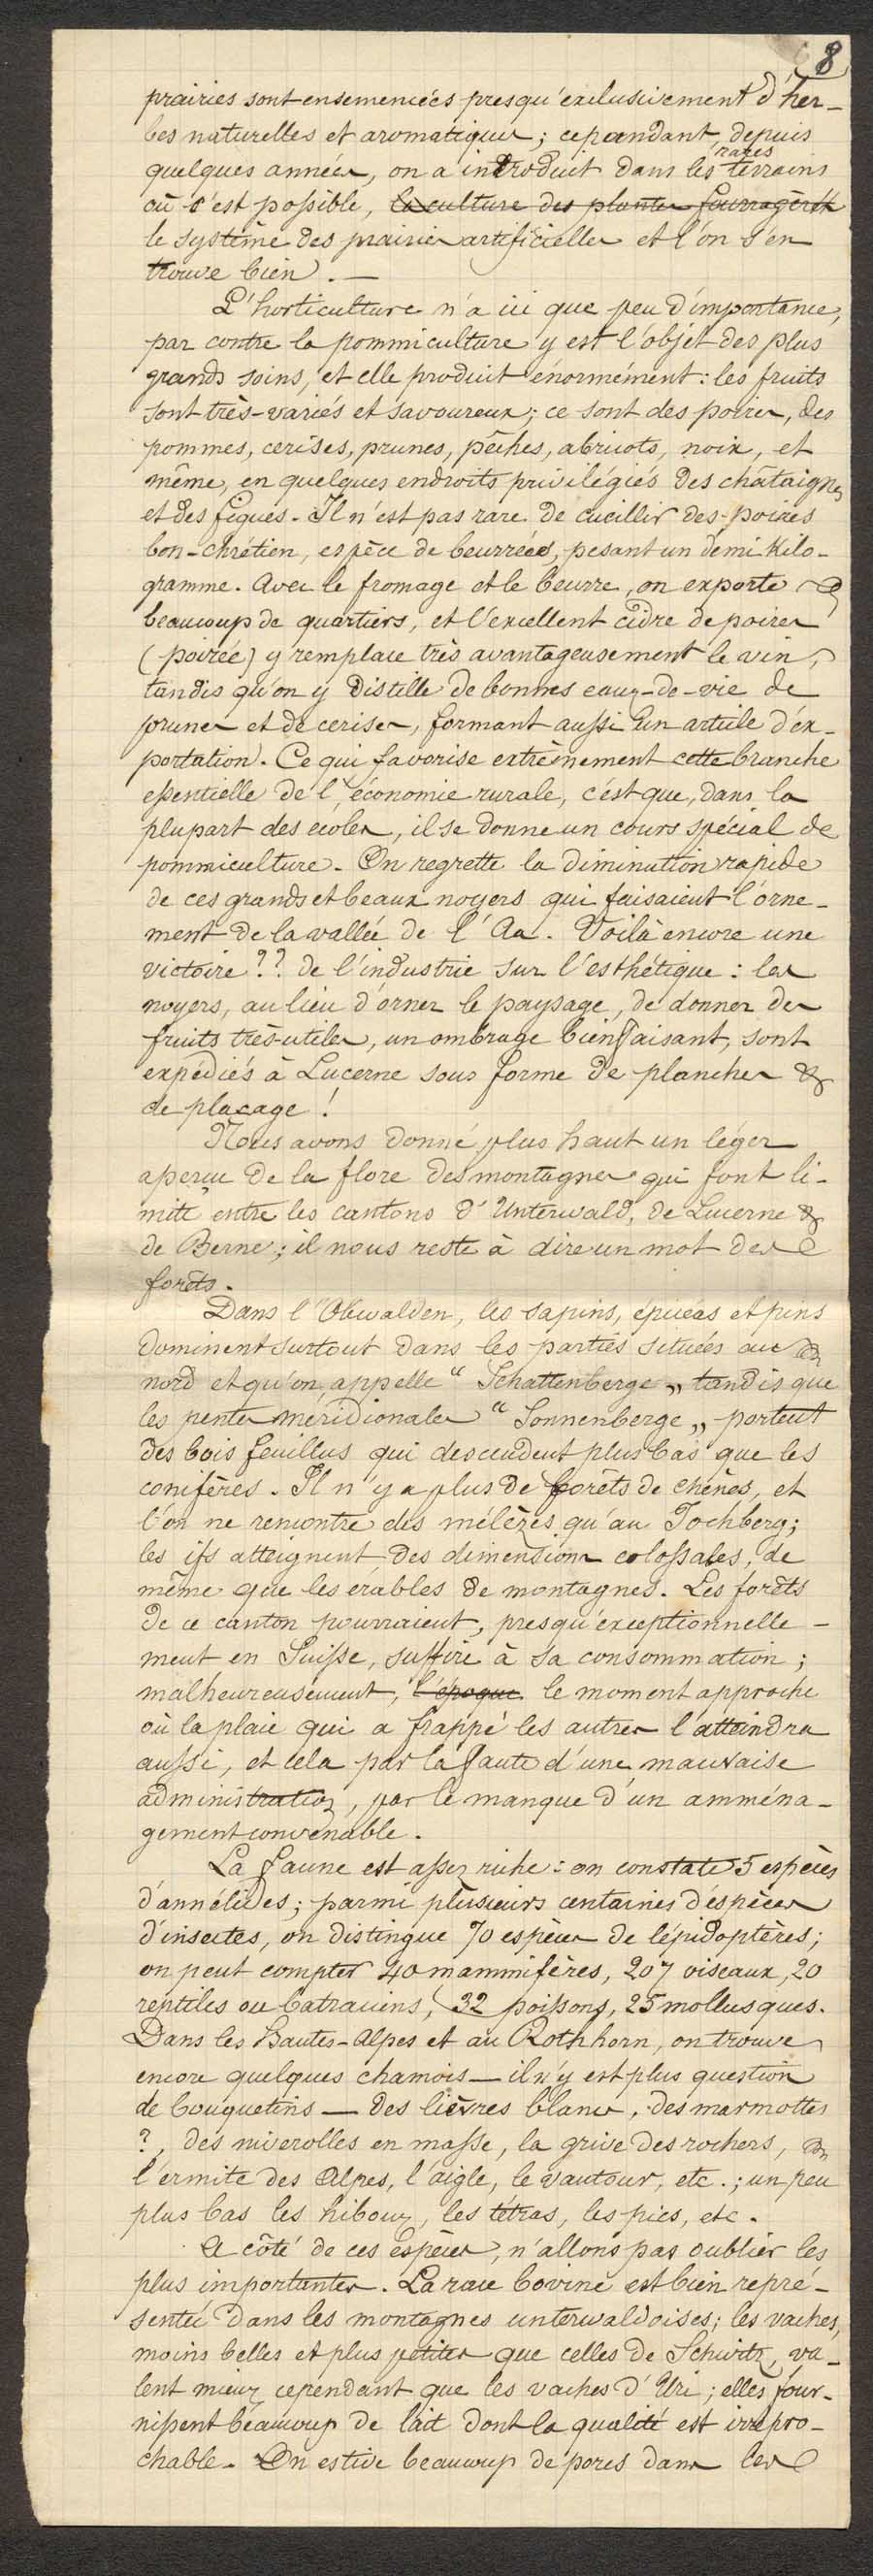 8
prairies sont ensemencées presqu'exclusivement d'her-
bes naturelles et aromatiques ; cependant, depuis
quelques années, on a introduit dans les rares terrains
où c'est possible, la culture des plantes fourragères
le système des prairies artificielles et l'on s'en
trouve bien. —
L'horticulture n'a ici que peu d'importance,
par contre la pommiculture y est l'objet des plus
grands soins, et elle produit énormément : les fruits
sont très-variés et savoureux ; ce sont des poires, des
pommes, cerises, prunes, pêches, abricots, noix, et
même, en quelques endroits privilégiés des châtaignes
et des figues. Il n'est pas rare de cueillir des poires
bon-chrétien, espèce de beurrées, pesant un demi kilo-
gramme. Avec le fromage et le beurre, on exporte
beaucoup de quartiers, et l'excellent cidre de poires
(poirée) y remplace très avantageusement le vin,
tandis qu'on y distille de bonnes eaux-de-vie de
prunes et de cerises, formant aussi un article d'ex-
portation. Ce qui favorise extrêmement cette branche
essentielle de l'économie rurale, c'est que, dans la
plupart des ecoles, il se donne un cours spécial de
pommiculture. On regrette la diminution rapide
de ces grands et beaux noyers qui faisaient l'orne-
ment de la vallée de l'Aa. Voilà encore une
victoire ?? de l'industrie sur l'esthétique : les
noyers, au lieu d'orner le paysage, de donner des
fruits très-utiles, un ombrage bienfaisant, sont
expédiés à Lucerne sous forme de planches &
de placage !
Nous avons donné plus haut un léger
aperçu de la flore des montagnes qui font li-
mite entre les cantons d'Unterwald, de Lucerne &
de Berne ; il nous reste à dire un mot des
forêts.
Dans l'Obwalden, les sapins, épicéas et pins
dominent surtout dans les parties situées au
nord et qu'on appelle “ Schattenberge „ tandis que
les pentes méridionales “ Sonnenberge „ portent
des bois feuillus qui descendent plus bas que les
conifères. Il n'y a plus de forêts de chênes, et
l'on ne rencontre des mélèzes qu'au Jochberg ;
les ifs atteignent des dimensions colossales, de
même que les érables de montagnes. Les forêts
de ce canton pourraient, presqu'exceptionnelle-
ment en Suisse, suffire à sa consommation ;
malheureusement, l'époque le moment approche
où la plaie qui a frappé les autres l'atteindra
aussi, et cela par la faute d'une mauvaise
administration, par le manque d'un amména-
gement convenable.
La faune est assez riche : on constate 5 espèces
d'annélides ; parmi plusieurs centaines d'espèces
d'insectes, on distingue 70 espèces de lépidoptères ;
on peut compter 40 mammifères, 207 oiseaux, 20
reptiles ou batraciens, 32 poissons, 25 mollusques.
Dans les Hautes-Alpes et au Rothhorn, on trouve
encore quelques chamois — il n'y est plus question
de bouquetins — des lièvres blancs, des marmottes
?, des niverolles en masse, la grive des rochers,
l'ermite des Alpes, l'aigle, le vautour, etc. ; un peu
plus bas les hiboux, les tétras, les pics, etc.
A côté de ces espèces, n'allons pas oublier les
plus importantes. La race bovine est bien repré-
sentée dans les montagnes unterwaldoises ; les vaches,
moins belles et plus petites que celles de Schwitz, va-
lent mieux cependant que les vaches d'Uri ; elles four-
nissent beaucoup de lait dont la qualité est irrépro-
chable. On estive beaucoup de porcs dans les